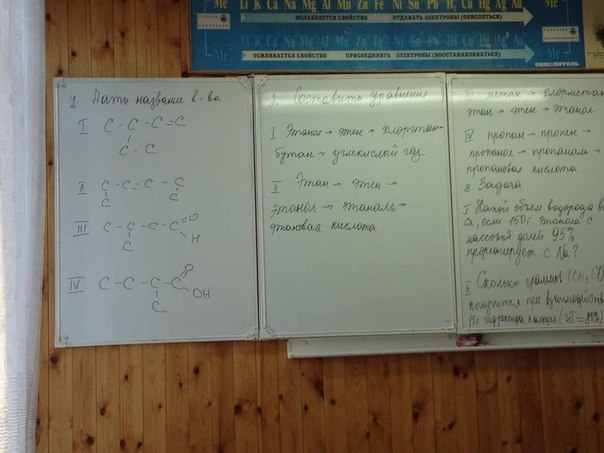 Me
Li K Ca Na Mg Al Mn Zn Fe Ni Sn Pb H₂ Cu Hg Ag Au
Me
ОСЛАБЛЯЕТСЯ СВОЙСТВО ОТДАВАТЬ ЭЛЕКТРОНЫ (ОКИСЛЯТЬСЯ)
УСИЛИВАЕТСЯ СВОЙСТВО ПРИСОЕДИНЯТЬ ЭЛЕКТРОНЫ (ВОССТАНАВЛИВАТЬСЯ)
окислитель
1 Дать название в-ва
I C - C - C = C
C - C
II C - C = C - C
C C
III C - C - C - C O
C H
IV C - C - C - C O
C OH
2. Составить уравнение
I Этан → этен → хлорэтан
бутан → углекислый газ
II Этан → этен →
этанол → этаналь →
этановая кислота
метан → хлорметан
этан → этен → этанол
IV пропан → пропен →
пропанол → пропаналь →
пропановая кислота
Задача
I Какой объем водорода
если 150г этанола с
массовой долей 95%
прореагирует с Na?
II Сколько граммов
при
15г гидроксида